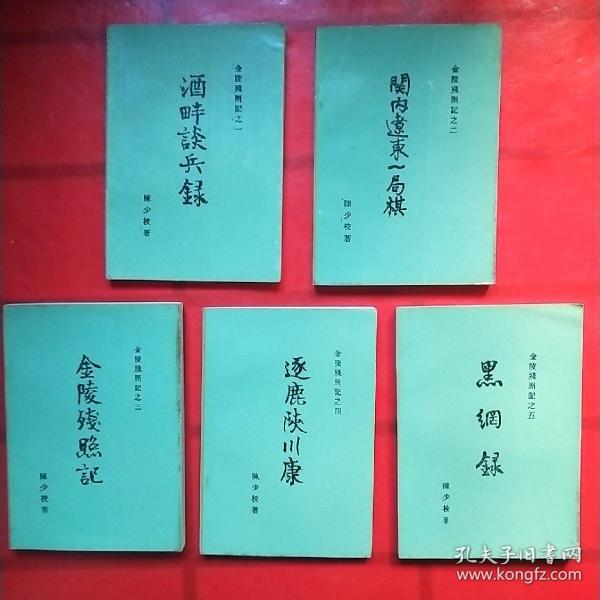 金陵殘照記之一
酒畔談兵錄
陳少校著
金陵殘照記之二
関内遼東一局棋
陳少校著
金陵殘照記之三
金陵殘照記
陳少校著
金陵殘照記之四
逐鹿陝川康
陳少校著
金陵殘照記之五
黑網錄
陳少校著
孔夫子旧書网
www.kongfz.com